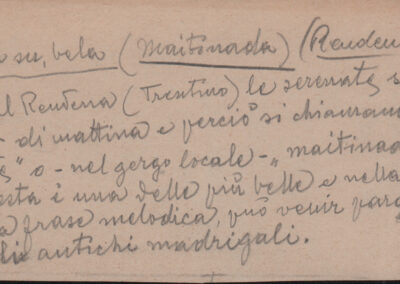 su, bela (Maitinada) (Renden
Rendena (Trentino) le serenate s
di mattina e perciò si chiaman
" o - nel gergo locale - "maitinad
sta è una delle più belle e nella
a frase melodica, può venir para
antichi madrigali.